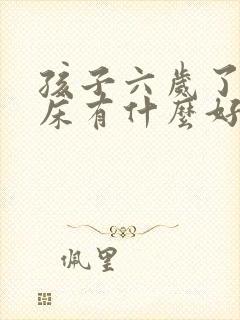 孩子六歲了
床有什麼好
佩里